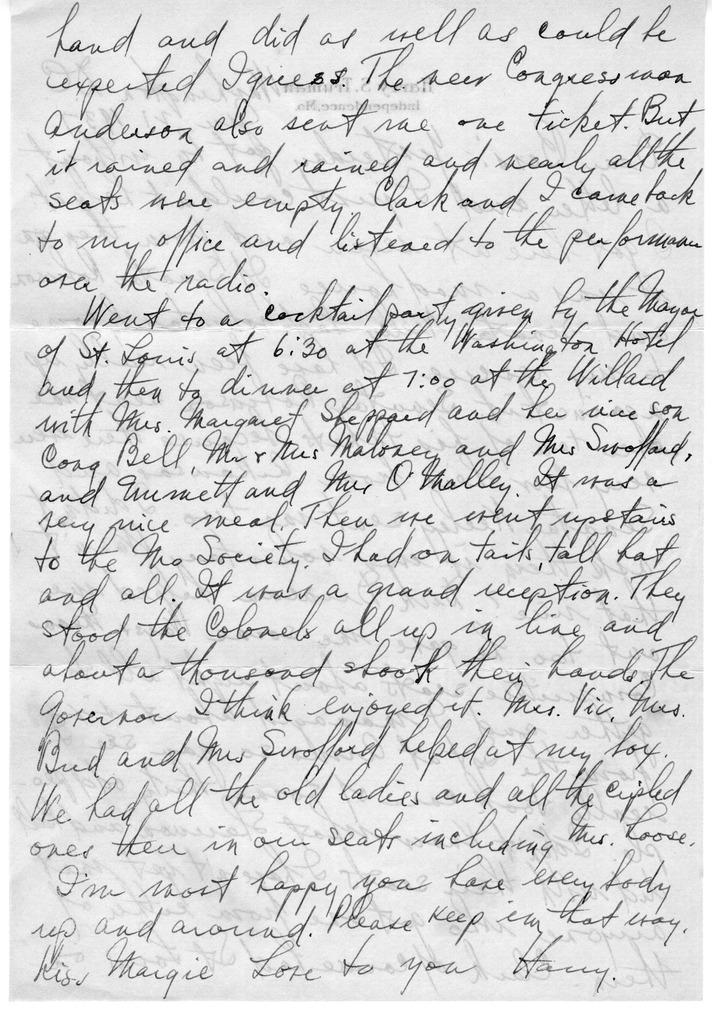 hand and did as well as could be
expected I guess. The new Congressman
Anderson also sent me one ticket. But
it rained and rained and nearly all the
seats were empty. Clark and I came back
to my office and listened to the performance
over the radio.
Went to a cocktail party given by the Mayor
of St. Louis at 6:30 at the Washington Hotel
and then to dinner at 7:00 at the Willard
with Mrs. Margaret Sheppard and her nice son
Cong Bell, Mr & Mrs Maloney and Mrs Swofford,
and Emmett and Mrs O'Malley. It was a
very nice meal. Then we went upstairs
to the Mo Society. I had on tails, tall hat
and all. It was a grand reception. They
stood the Colonels all up in line and
about a thousand shook their hands. The
Governor I think enjoyed it. Mrs. Vic, Mrs.
Bud and Mrs Swofford helped at my box.
We had all the old ladies and all the cripled
ones then in our seats including Mrs. Loose.
I'm most happy you have every body
up and around. Please keep em that way.
Kiss Margie Love to you Harry.